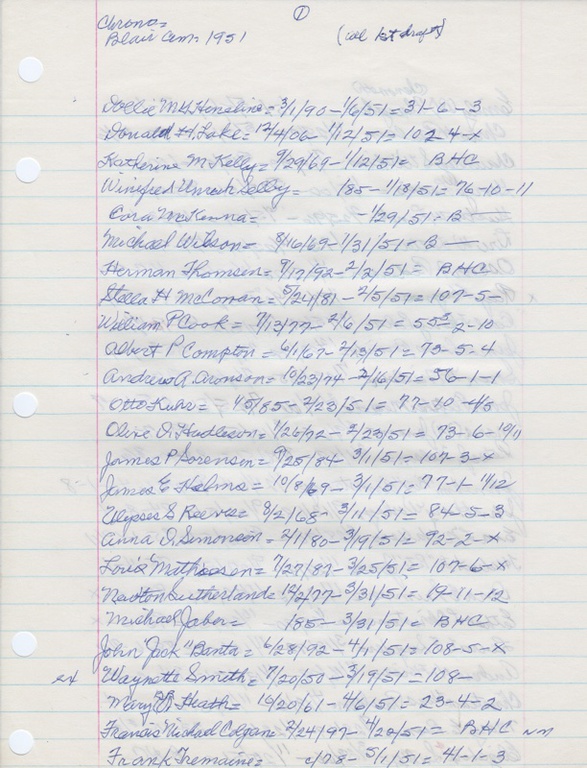 ①
Chrono=
Blair Cem. 1951 (all 1st drafts)
Dollie McG Henoline = 3/1/90 - 1/6/51 = 31-6-3
Donald H. Lake = 12/4/06 - 1/12/51 = 102-4-x
Katherine M. Kelly = 9/29/69 - 1/12/51 = BHC
Winifred Unruh Selby = 185 - 1/18/51 = 76-10-11
Cora McKenna = - 1/29/51 = B —
Michael Wilson = 8/16/69 - 1/31/51 = B —
Herman Thomsen = 9/17/92 - 2/2/51 = BHC
Stella H McComan = 5/24/81 - 2/5/51 = 107-5-
William P Cook = 7/13/77 - 2/6/51 = 55-2-10
Albert P Compton = 6/1/67 - 2/13/51 = 73-5-4
Andrew A. Aronson = 10/23/74 - 2/16/51 = 56-1-1
Otto Kuhr = 1/5/85 - 2/23/51 = 77-10-4/5
Olive D. Hudleson = 1/26/72 - 2/23/51 = 73-6-10/11
James P Sorensen = 9/25/84 - 3/1/51 = 107-3-x
James E Helms = 10/8/69 - 3/1/51 = 77-1-11/12
Ulysses S Reeves = 8/2/68 - 3/11/51 = 84-5-3
Anna D. Simonsen = 2/1/80 - 3/9/51 = 92-2-x
Louis Mathiesen = 7/27/87 - 3/25/51 = 107-6-x
Newton Sutherland = 12/2/77 - 3/31/51 = 19-11-12
Michael Jabor = 185 - 3/31/51 = BHC
John "Jack" Banta = 6/28/92 - 4/1/51 = 108-5-x
Waynette Smith = 7/20/50 - 3/19/51 = 108-
Mary Heath = 10/20/61 - 4/6/51 = 23-4-2
Francis Michael Colgan = 2/24/97 - 4/20/51 = BHC nm
Frank Tremaine = /78 - 5/1/51 = 41-1-3